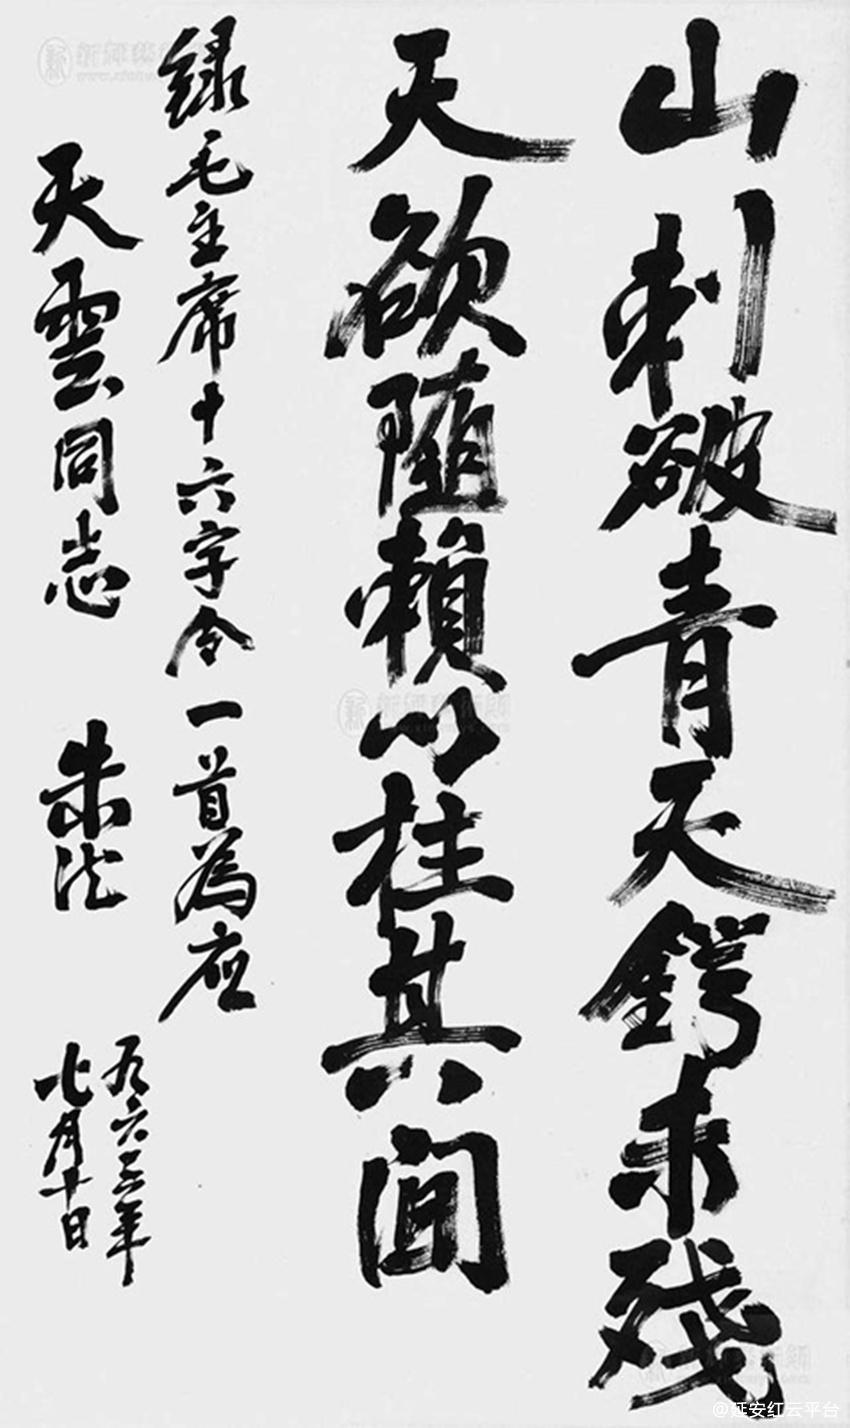 山刺破青天鍔未殘
天欲随賴以柱其间
绿毛主席十六字令一首為应
天雲同志
朱德
九六三年
七月十日
@延安红云平台